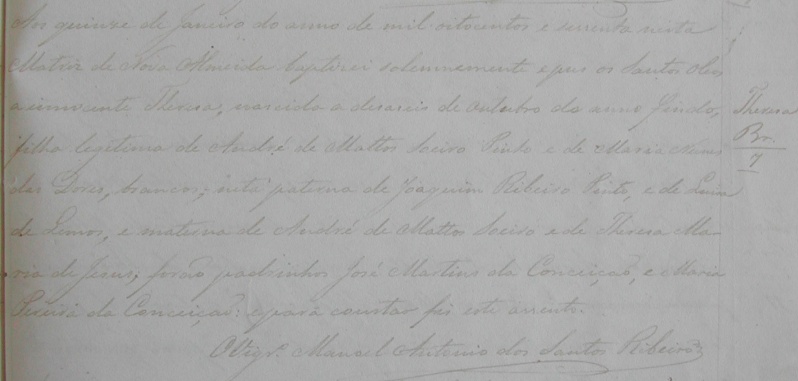 Aos quinze de Janeiro do anno de mil oitocentos e secenta nesta
Matriz de Nova Almeida baptizei solemnemente e pus os Santos Oleos
a innocente Theresa, nascida a deseseis de outubro do anno findo,
filha legitima de André de Mattos Soeiro Pinto e de Maria Nunes
das Dores, brancos; neta paterna de Joaquim Ribeiro Pinto, e de Luiza
de Lemos, e materna de André de Mattos Soeiro e de Theresa Ma-
ria de Jesus; forão padrinhos José Martins da Conceição, e Maria
Pereira da Conceição: e para constar fis este assento.
O Vigrº Manoel Antonio dos Santos Ribeiro
Theresa
Br.
7